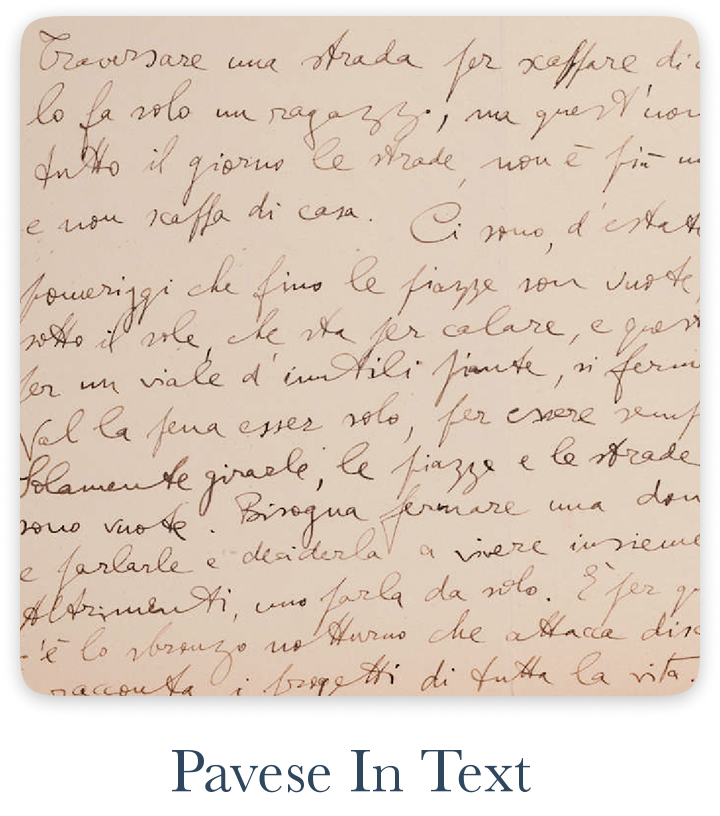 Traversare una strada per scappare di
lo fa solo un ragazzo, ma quest'uom
tutto il giorno le strade, non è più un
e non scappa di casa. Ci sono, d'estate
pomeriggi che fino le piazze son vuote,
sotto il sole, che sta per calare, e quest
per un viale d'inutili piante, si ferm
Val la pena esser solo, per essere semp
Solamente girarle, le piazze e le strade
sono vuote. Bisogna fermare una don
e parlarle e deciderla a vivere insieme
Altrimenti, uno parla da solo. È per qu
c'è lo sbronzo notturno che attacca disc
racconta i progetti di tutta la vita.
Pavese In Text